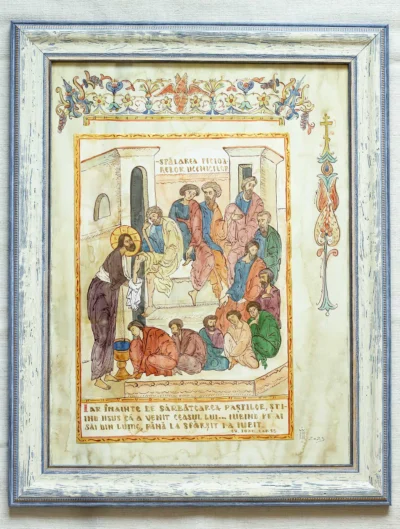 SPĂLAREA PICIOA
RELOR UCENICILOR
IAR ÎNAINTE DE SĂRBĂTOAREA PAȘTILOR, ȘTI-
IND IISUS CĂ A VENIT CEASUL LUI... IUBIND PE AI
SĂI DIN LUME, PÂNĂ LA SFÂRȘIT I-A IUBIT.